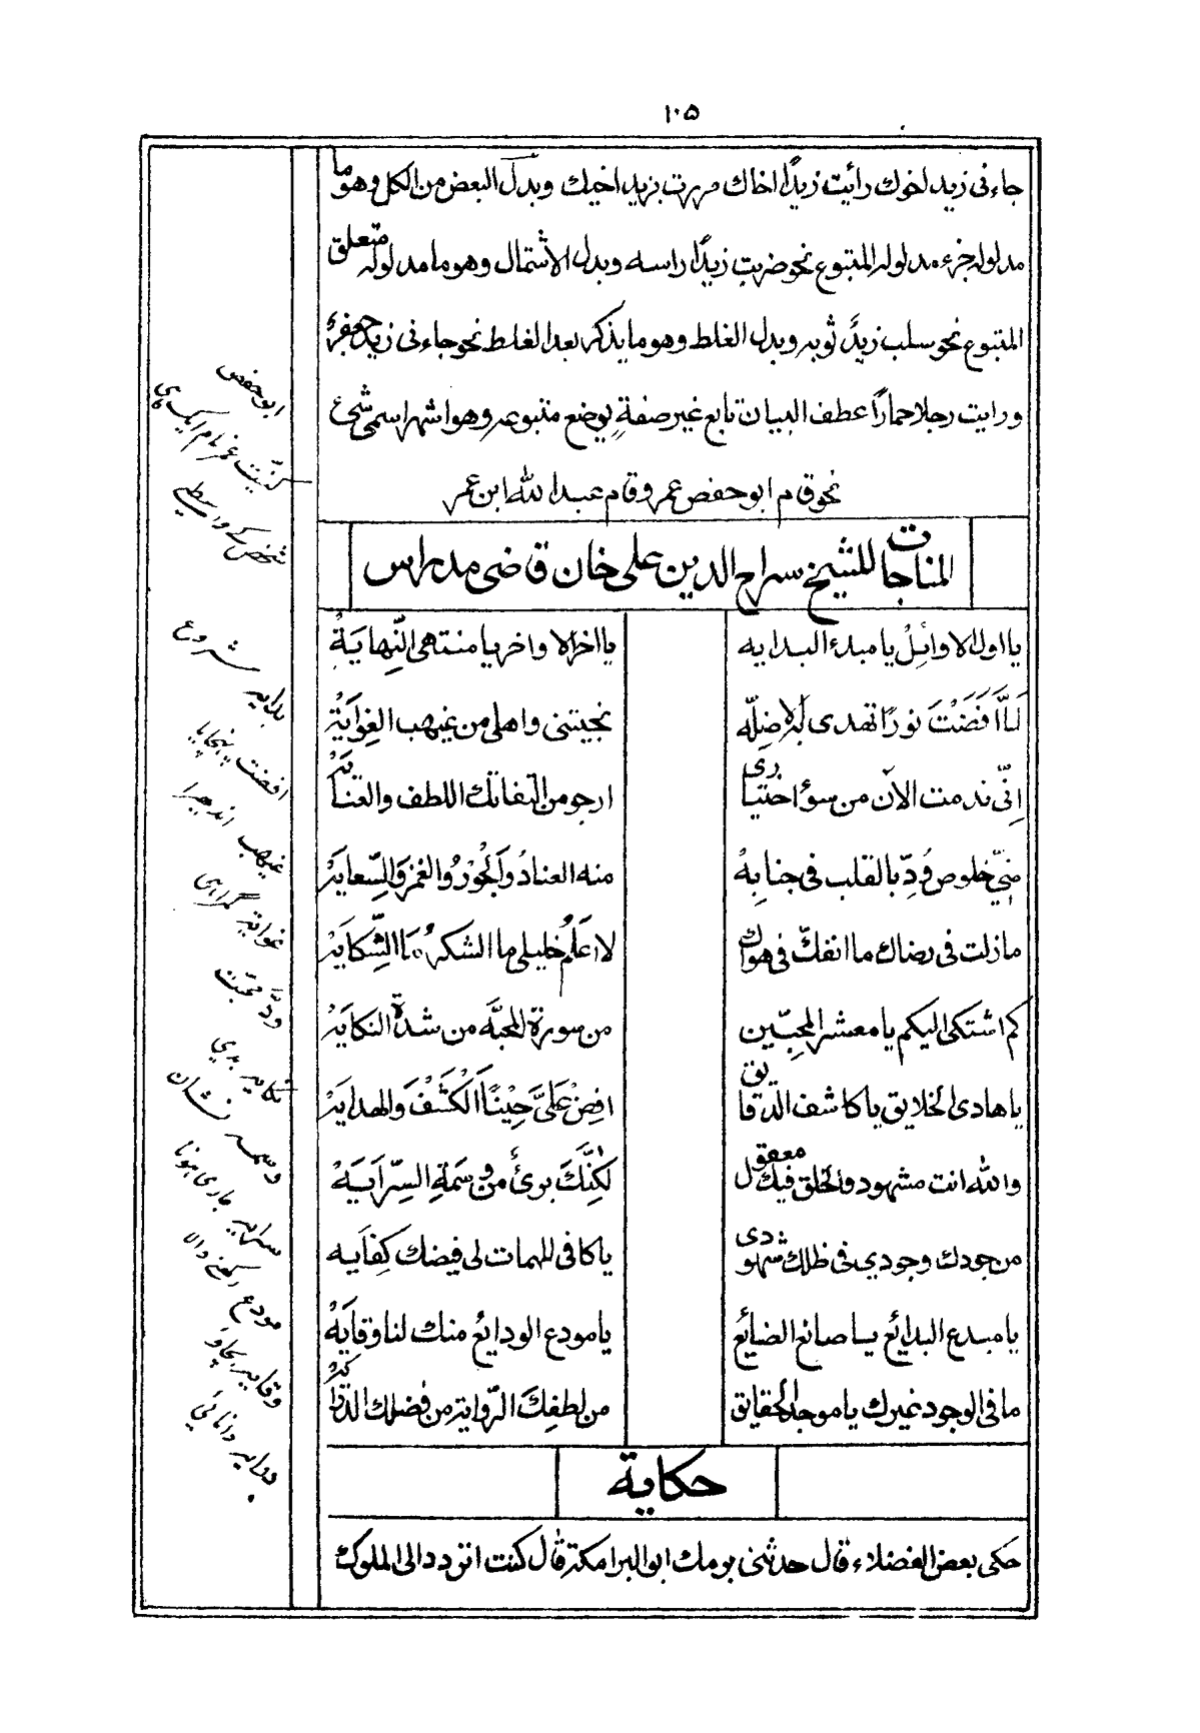 ١٠٥
جاءنى زيد اخوك رأيت زيدًا اخاك مررت بزيد اخيك وبدل البعض من الكل وهو ما
مدلوله جزء مدلوله المتبوع نحو ضربت زيدًا راسه وبدل الاشتمال وهو ما مدلوله متعلق
المتبوع نحو سلب زيدٌ ثوبه وبدل الغلط وهو ما يذكر بعد الغلط نحو جاءنى زيد جعفر
ورايت رجلا حمارًا عطف البيان تابع غير صفةٍ يوضع متبوعه وهو اشهر اسمى شئ
نحو قام ابو حفص عمر وقام عبد الله ابن عمر
المناجات للشيخ سراج الدين على خان قاضى مدراس
يا اول الاوائلُ يا مبدء البدايه يا اخر الاواخر يا منتهى النِّهايَةُ
لَمَّا اَفَضْتَ نورًا تهدى به لاضِلّه نجيتنى واهلى من غيهب الغِوَايَهْ
اِنّى ندمت الآن من سوٴ اختيارى ارجو من التفاتك اللطف والعنايَهْ
مِنّي خلوص وُدِّ بالقلب فى جنابِهْ منه العنادُ وَالجَوْرُ والغمز وَالسِّعايَهْ
مازلت فى رضاك ما انفكّ فى هواك لا اَعلَمُ خليلى ما الشكرُ مَا الشِّكايَهْ
كم اشتكى اليكم يا معشر المحبِّين من سورة المحبَّه من شدة النكايَهْ
يا هادى الخلايق يا كاشف الدّقايق افِضْ عَلَىَّ حِيْنًا اَلْكَشْفَ وَالهدايَهْ
والله انت مشهود والخلق فيك معقول لٰكِنَّكَ برئٌ من وسَمَةِ السِّرَايَهْ
من جودك وجودي فى ظلك شهودى يا كافى المهمات لى فيضك كِفَايه
يا مبدع البدائع يا صانع الضايَع يا مودع الودايع منك لنا وِقايَهْ
ما فى الوجود غيرك يا موجد الحقايق من لطفِكَ الرّواية من فضلك الدّرايَهْ
حكاية
حكى بعض الفضلاء قال حدثنى يومك ابو البرامكة قال كنت اتردد الى الملوك
ابو حفص
كنّيت عمر نام ايک ہى
شخص كے واسطے
بدايه شروع
افضت پہنچايا
غيهب اندهيرا
غوايه گمراہى
ودّ محبّت
نكايه بدي
وسمه نشان
سرايه جارى ہونا
مودع ركھنے والا
وقايه بچاؤ
درايه دانائي